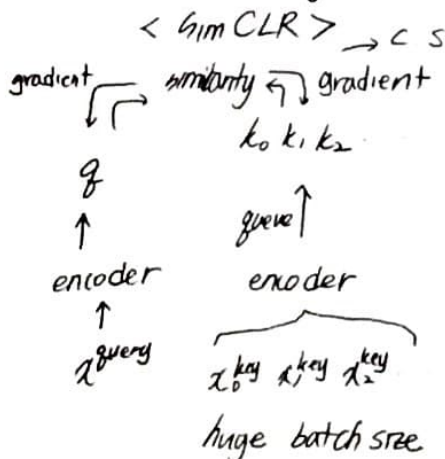 < SimCLR > → C S
gradient similarity gradient
q k₀ k₁ k₂
queue
encoder encoder
x^query x₀^key x₁^key x₂^key
huge batch size